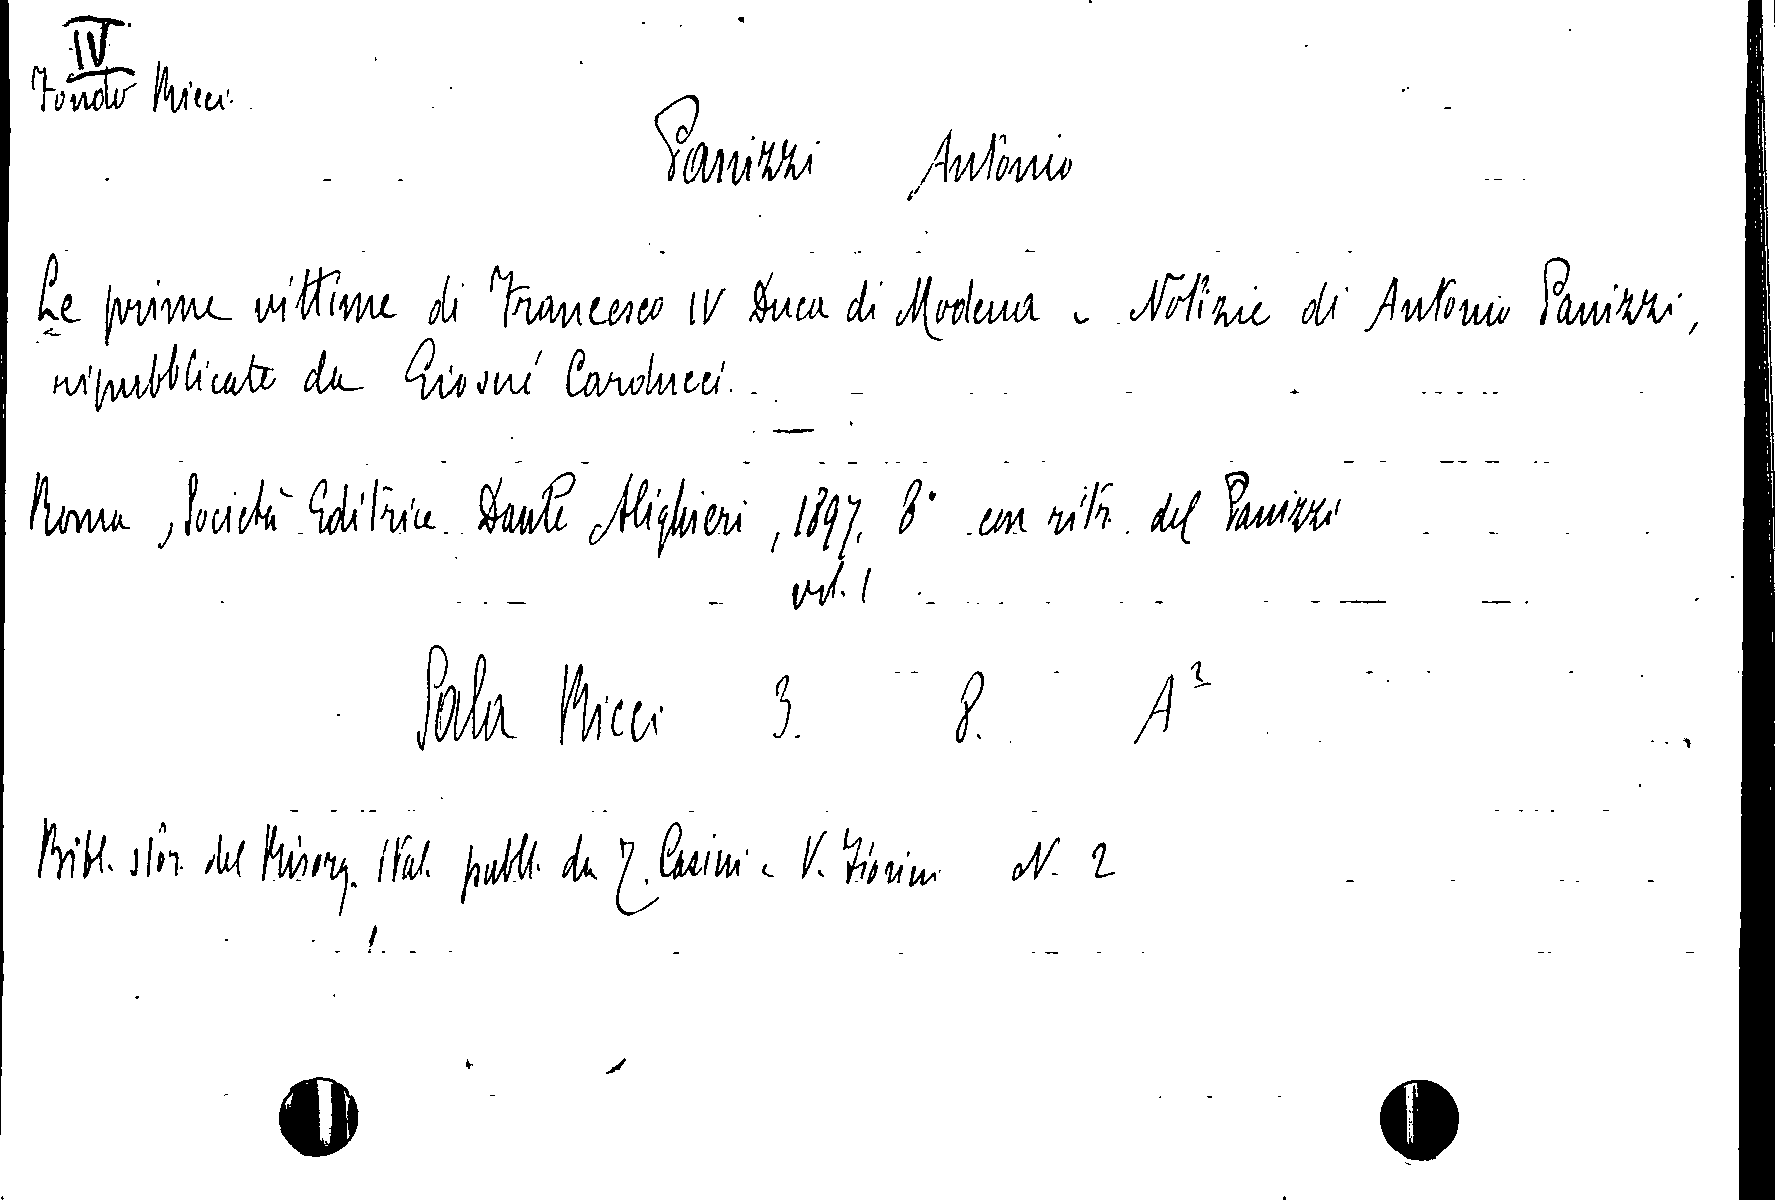 IV
Fondo Ricci
Panizzi Antonio
Le prime vittime di Francesco IV Duca di Modena - Notizie di Antonio Panizzi,
ripubblicate da Giosué Carducci.
Roma, Società Editrice Dante Alighieri, 1897. 8° con ritr. del Panizzi
vol. 1
Sala Ricci 3. 8. A²
Bibl. stor. del Risorg. Ital. pubbl. da T. Casini e V. Fiorini N. 2